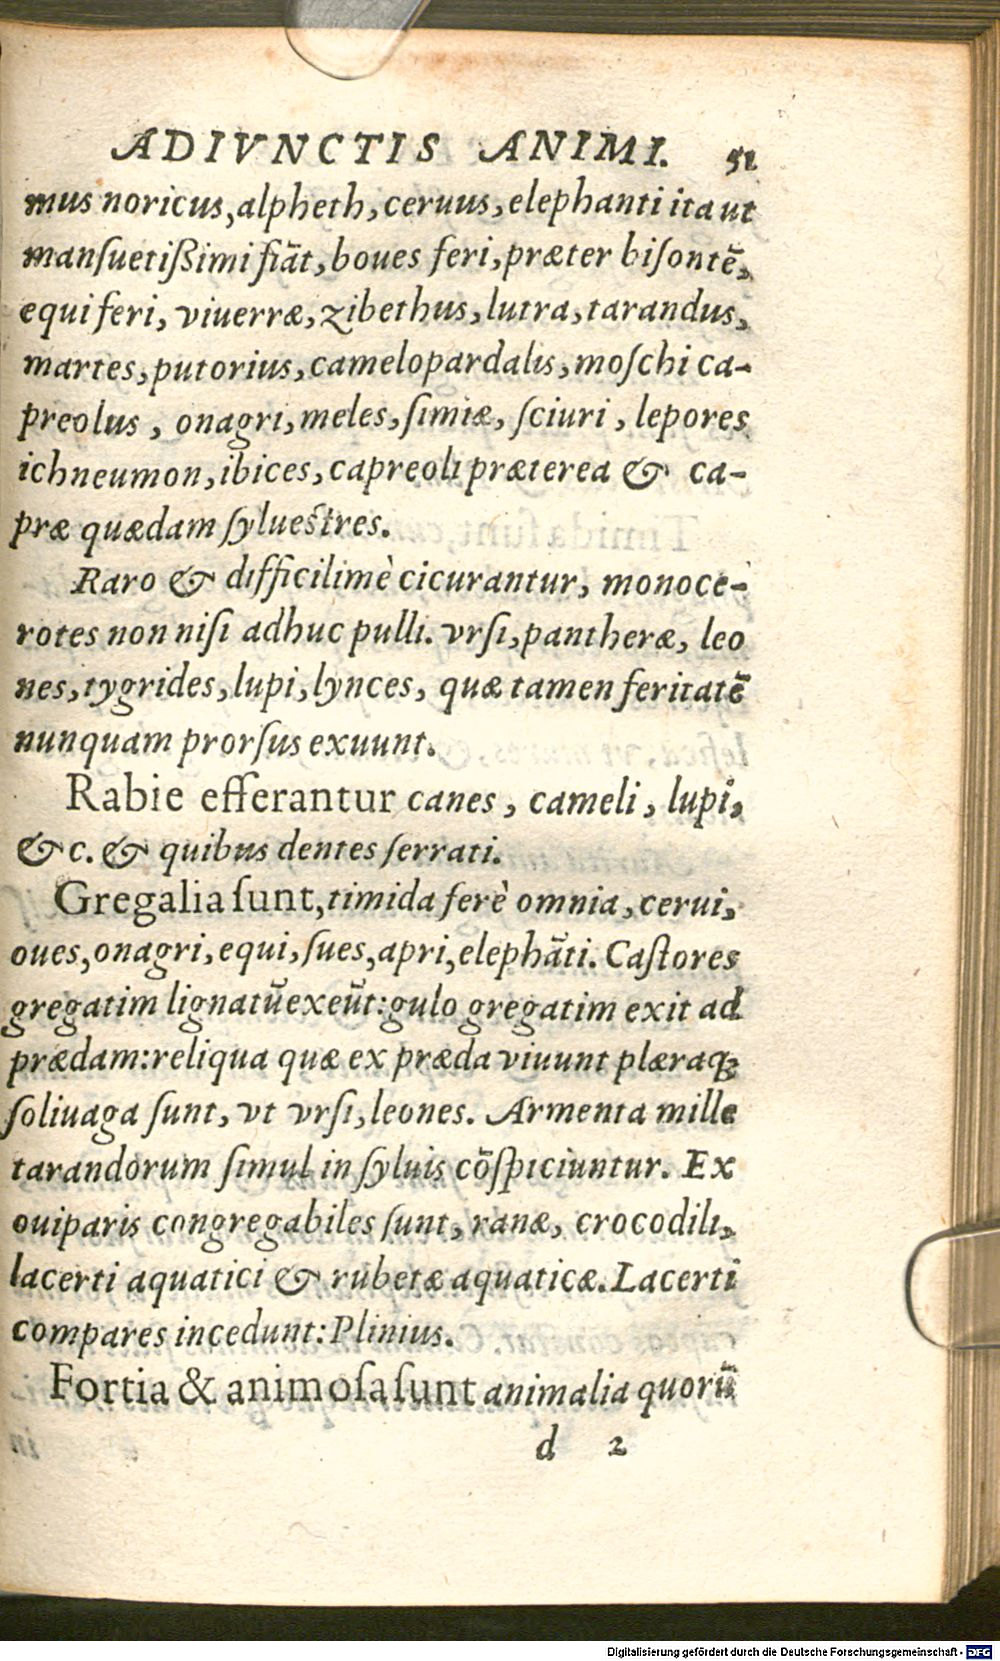 ADIVNCTIS ANIMI. 51
mus noricus, alpheth, ceruus, elephanti ita ut
mansuetißimi fiāt, boues feri, præter bisontē,
equi feri, viuerræ, zibethus, lutra, tarandus,
martes, putorius, camelopardalis, moſchi ca-
preolus, onagri, meles, ſimiæ, ſciuri, lepores
ichneumon, ibices, capreoli præterea & ca-
præ quædam ſylueſtres.
Raro & difficilimè cicurantur, monoce-
rotes non niſi adhuc pulli. vrſi, pantheræ, leo
nes, tygrides, lupi, lynces, quæ tamen feritatē
nunquam prorſus exuunt.
Rabie efferantur canes, cameli, lupi,
&c. & quibus dentes ſerrati.
Gregalia ſunt, timida ferè omnia, cerui,
oues, onagri, equi, ſues, apri, elephāti. Caſtores
gregatim lignatū exeūt: gulo gregatim exit ad
prædam: reliqua quæ ex præda viuunt plæraqꝫ
ſoliuaga ſunt, vt vrſi, leones. Armenta mille
tarandorum ſimul in ſyluis cōſpiciuntur. Ex
ouiparis congregabiles ſunt, ranæ, crocodili,
lacerti aquatici & rubetæ aquaticæ. Lacerti
compares incedunt: Plinius.
Fortia & animoſa ſunt animalia quorū
d 2
Digitalisierung gefördert durch die Deutsche Forschungsgemeinschaft - DFG